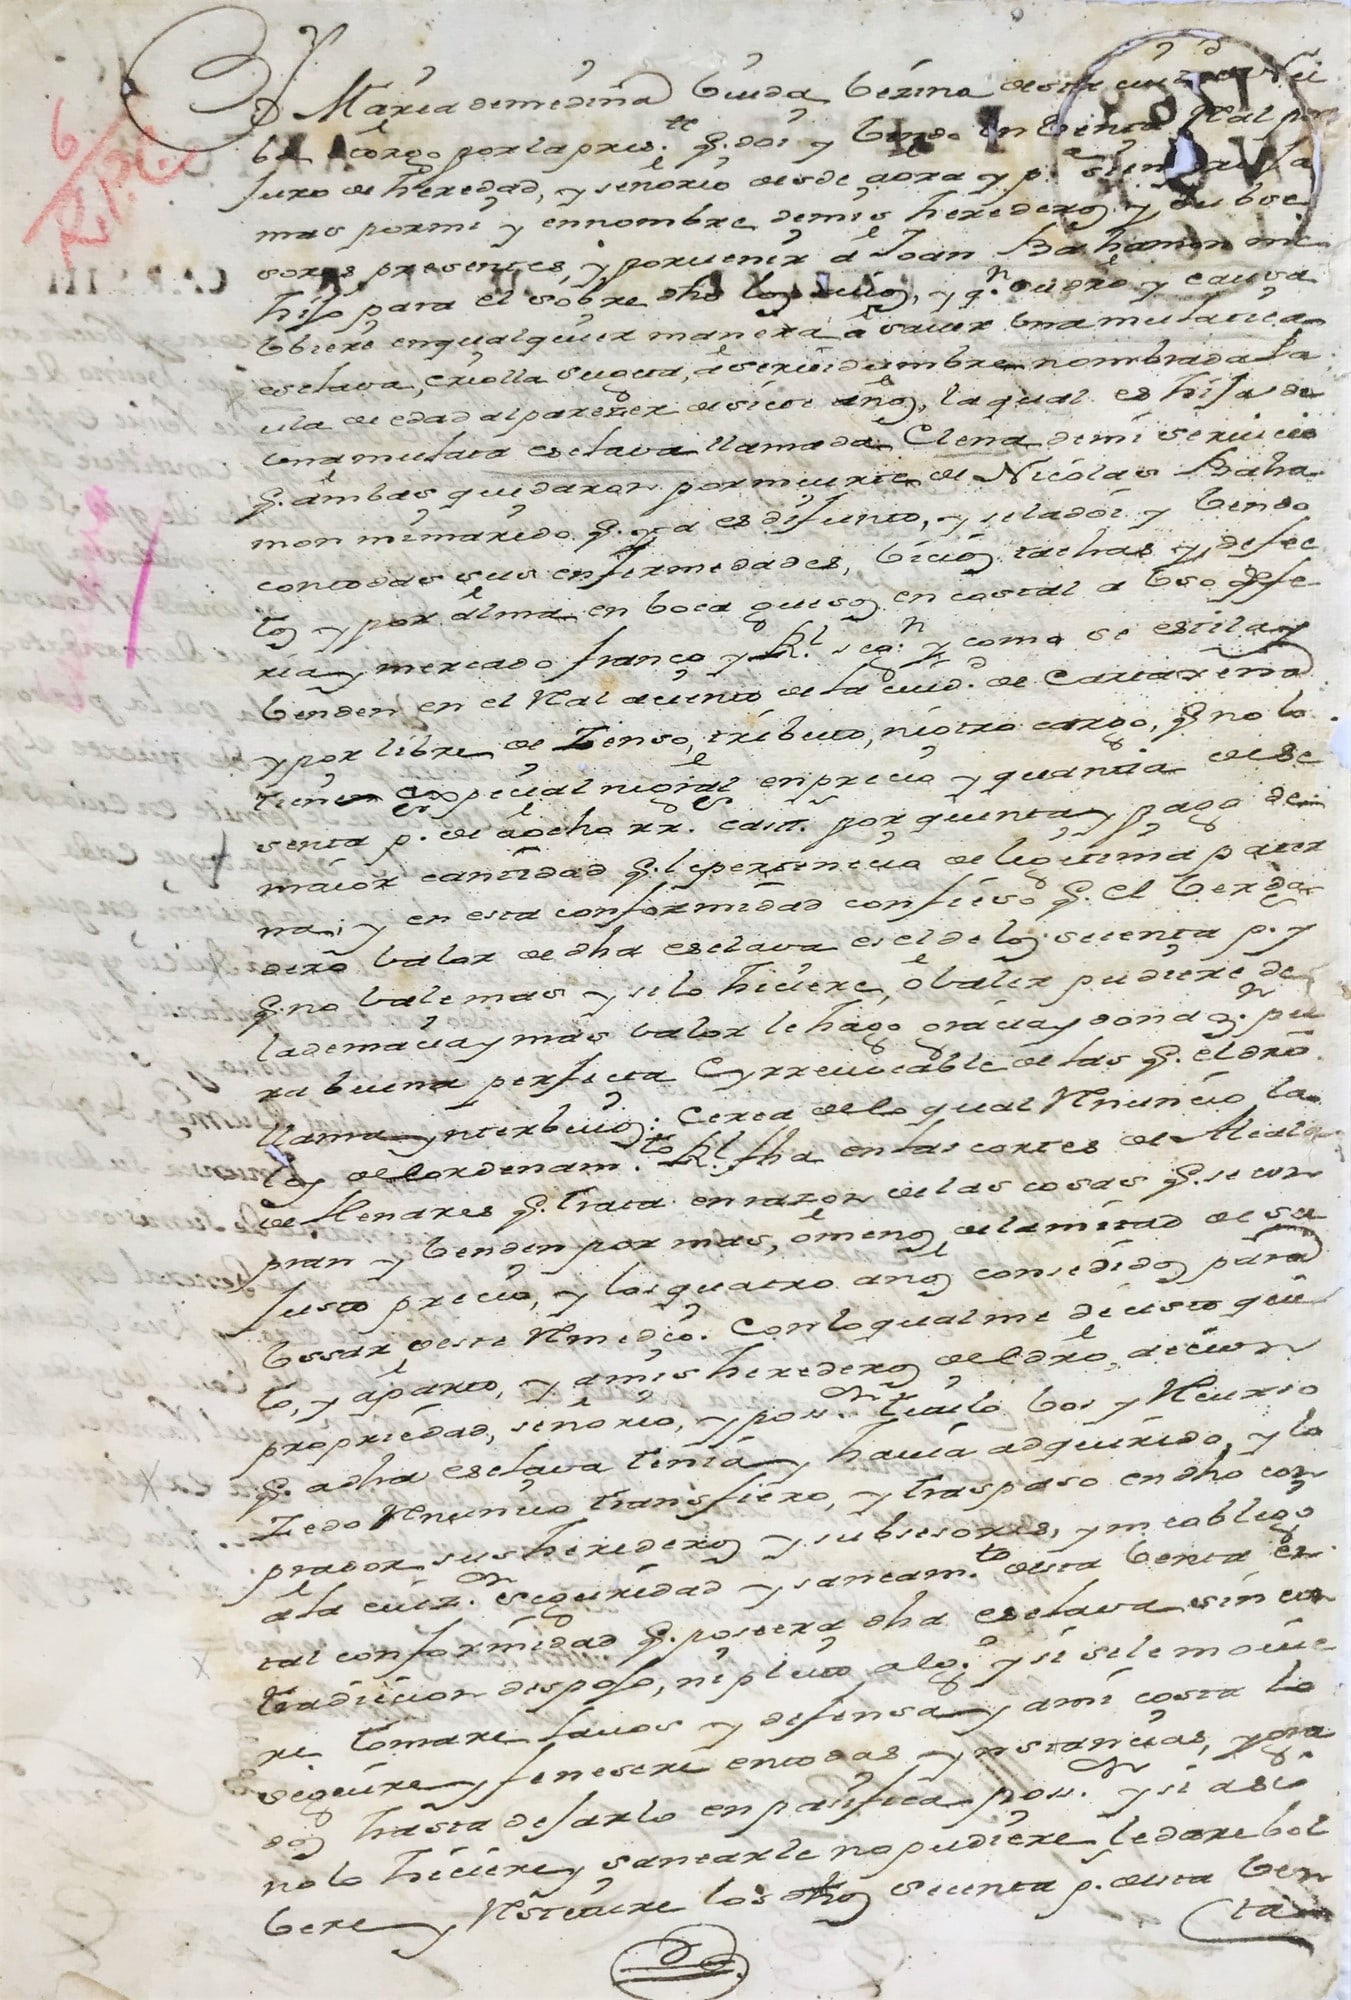 6
R.P.C.
Maria de medina biuda bezina desta ciudad
otorgo por la pres.te q. doi y bendo en benta Rral por
juro de heredad, y señorio desde aora y p.a siempre ja
mas por mi y en nombre de mis herederos y subse
sores presentes, y porvenir a Joan Bahamon mi
hijo para el sobre dho los suios, y q.n su dro y causa
obiere en qualquier manera a saver una mulatica
esclava, criolla sugeta, a serbidumbre nombrada Pa
ula de edad al parezer de siete años, la qual es hija de
una mulata esclava llamada Elena de mi servicio
q. ambas quedaron por muerte de Nicolas Baha
mon mi marido q. ya es difunto, y se la doi y bendo
con todas sus enfermedades, bicios tachas y defec
tos y por alma en boca guesos en costal a uso de fe
ria y mercado franco y Rl. seg.n y como se estila y
benden en el Rral acuento de la ciud.d de Cartaxena
y por libre de zenso, tributo, ni otro cargo, q. no lo
tiene especial ni gral en precio y quantia de se
senta p.s de a ocho rr.s castt.s por quenta y pago de
maior cantidad q. le pertenecio de legitima pater
na, y en esta conformidad confieso q. el berda
dero valor de dha esclava es el de los sesenta p.s y
q. no bale mas y si lo hiciere, o baler pudiere de
la demacia y mas valor le hago gracia y donaz.on pu
ra buena perfecta e yrrevocable de las q. el dro
llama ynterbivos. Cerca de lo qual Rnuncio la
ley del ordenam.to Rl. fha en las cortes de Alcala
de Henares q. trata en razon de las cosas q. se con
pran y benden por mas, o menos de la mitad de su
justo precio, y los quatro años consedidos para
ussar deste Rmedio. Con lo qual me decisto qui
to, y aparto, y a mis herederos del dro, accion
propriedad, señorio, y poss.on titulo bos y Rcurso
q. a dha esclava tenia y havia adquirido, y lo
zedo Rnuncio transfiero, y traspaso en dho con
prador sus herederos y subsesores, y me obligo
a la evicz.on seguridad y saneam.to desta benta en
tal conformidad q. poseera dha esclava sin con
tradiccion despojo, ni pleito, algo. y si se le movie
re tomare la vos y defensa y a mi costa lo
seguire y fenesere en todas ynstancias, y gra
dos hasta dejarlo en pasifica poss.on y si asi
no lo hiciere y sanearle no pudiere le dare bol
bere y Rstituire los dhos sesenta p.s desta ben
ta